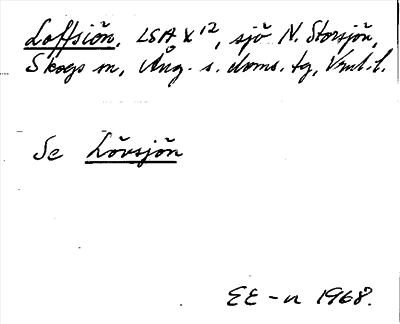 Loffsiön, LSA X 12, sjö N. Storsjön,
Skogs sn, Ång. s. doms. tg, Vnl. l.
Se Lövsjön
EE-n 1968.